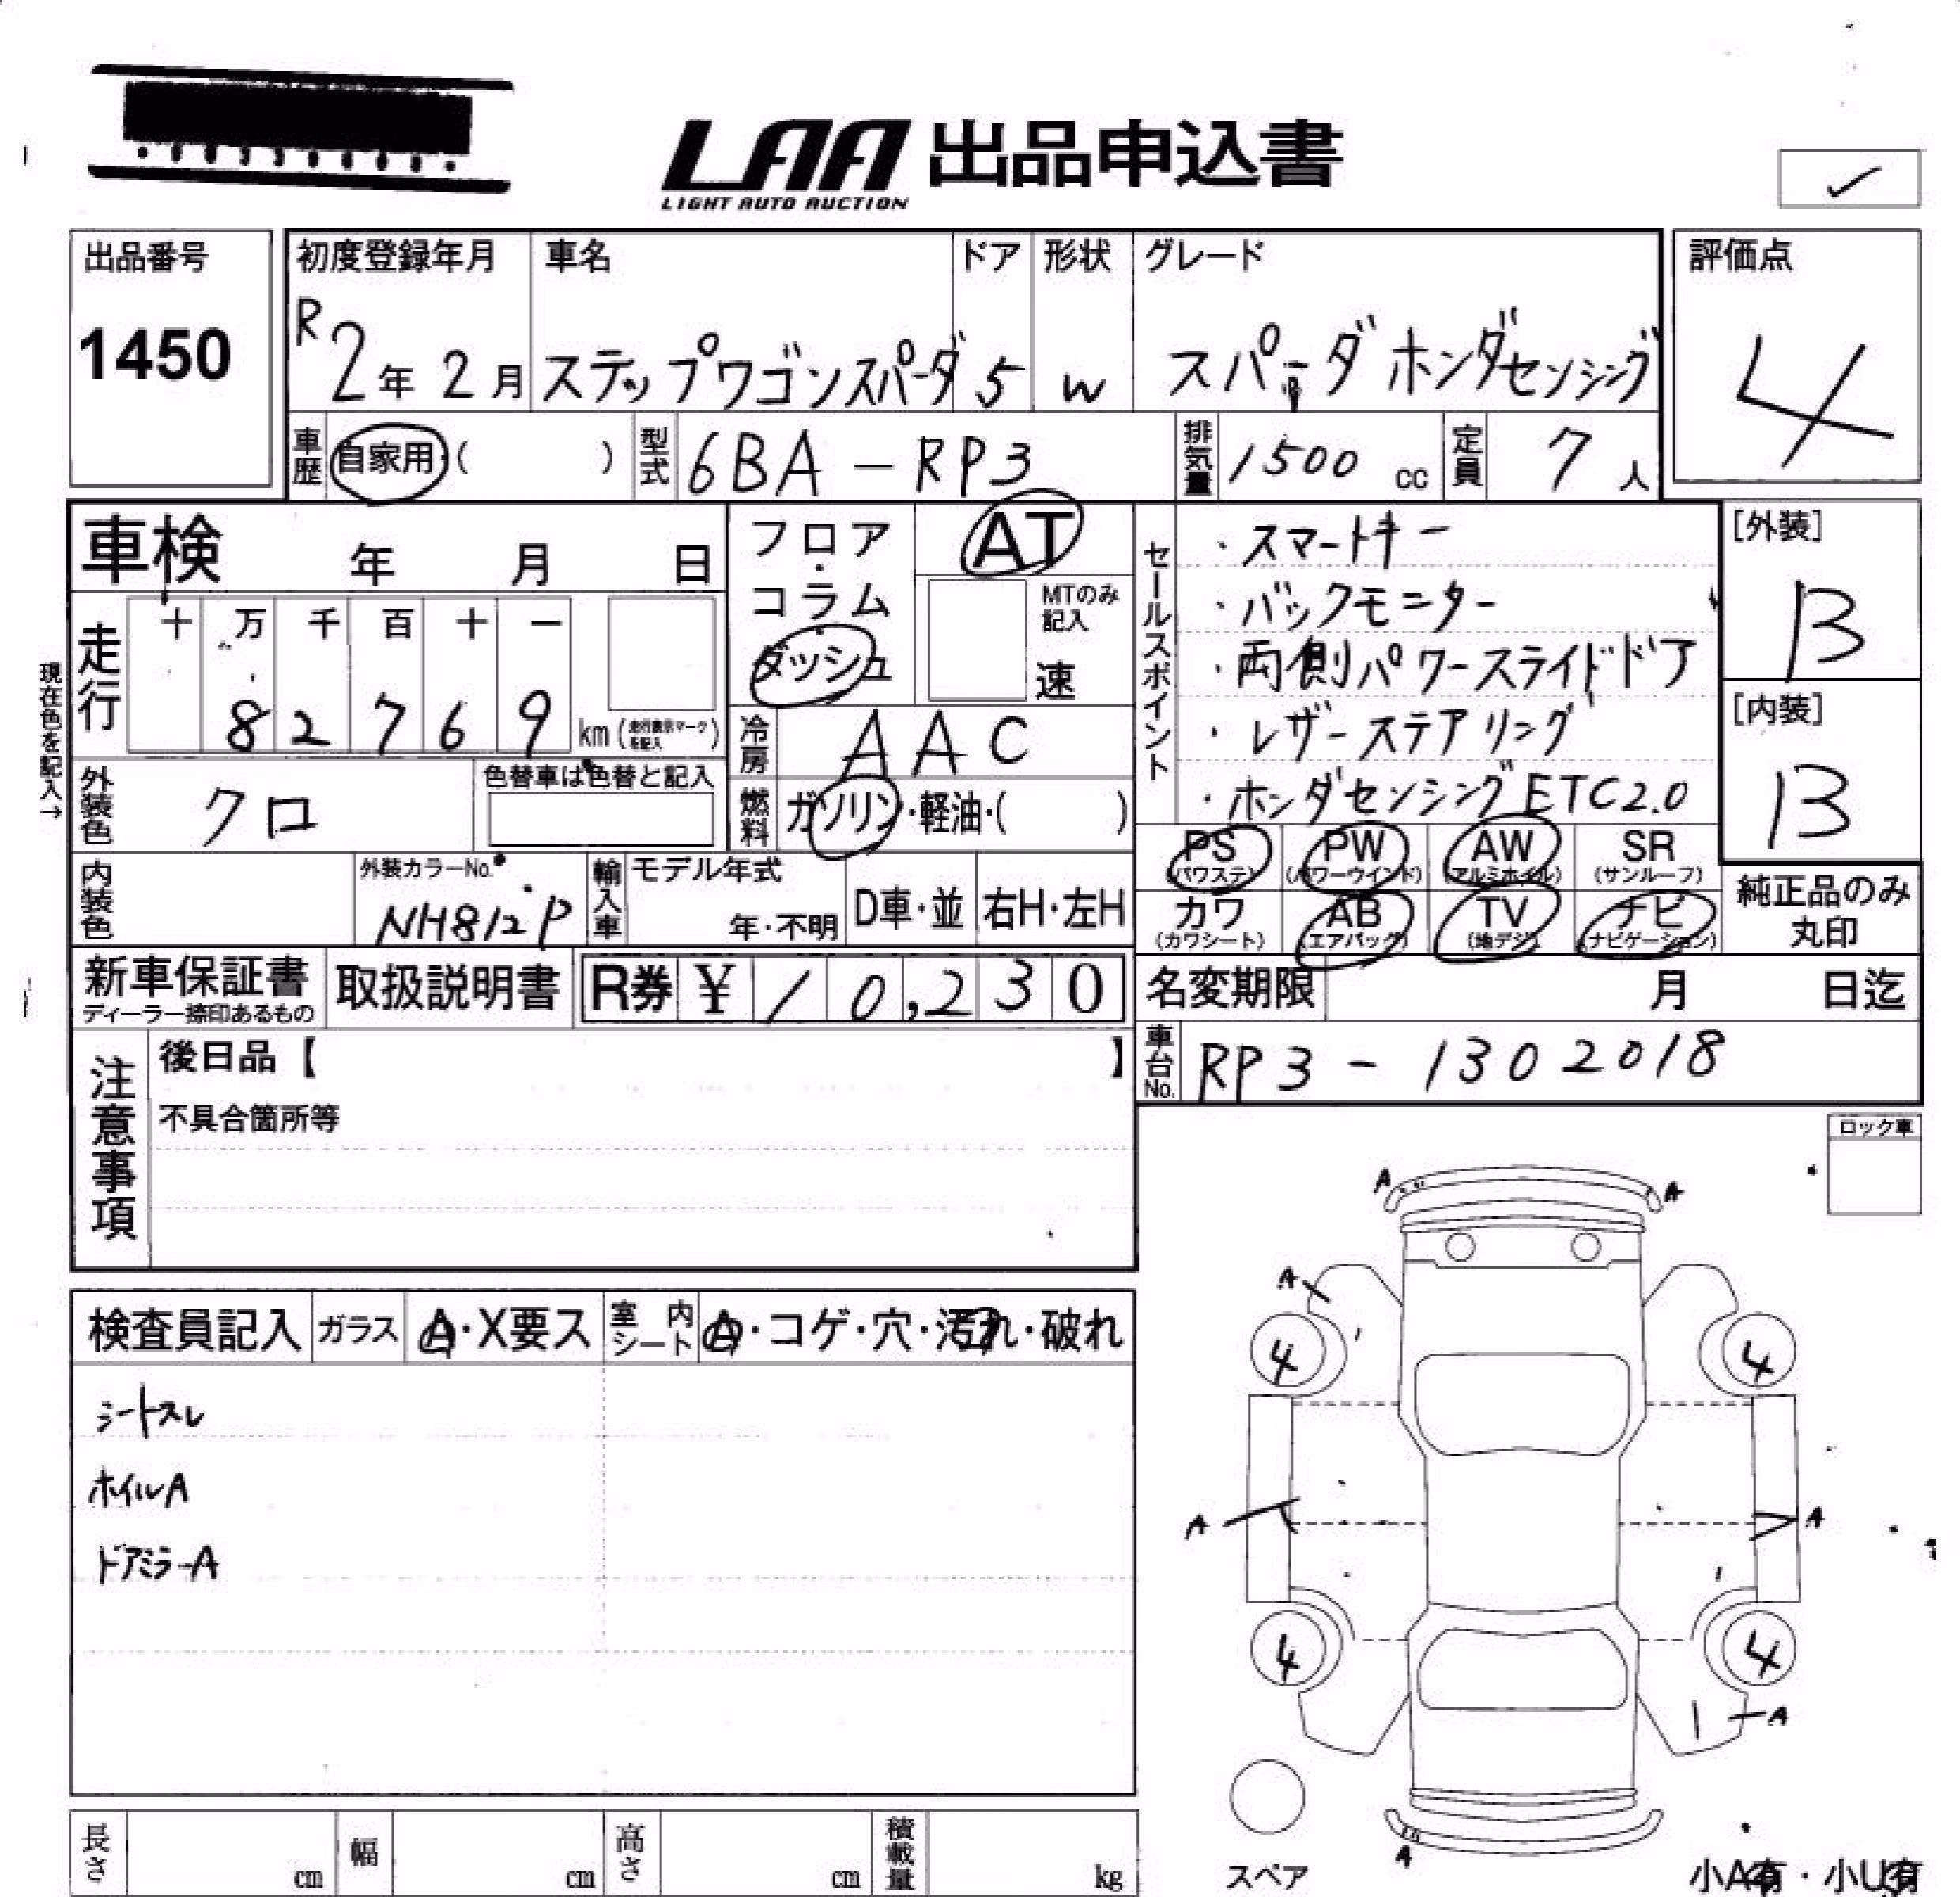 LAA 出品申込書
LIGHT AUTO AUCTION
出品番号
1450
初度登録年月 車名 ドア 形状 グレード
R2年 2月 ステップワゴンスパーダ 5 W スパーダ ホンダセンシング
評価点
4
車歴 自家用・( ) 型式 6BA-RP3 排気量 1500 cc 定員 7人
車検 年 月 日
フロア・コラム・ダッシュ
AT
MTのみ記入
速
現在色を記入→
走行 十 万 千 百 十 一
82769 km
冷房 AAC
外装色 クロ
色替車は色替と記入
燃料 ガソリン・軽油・( )
セールスポイント
・スマートキー
・バックモニター
・両側パワースライドドア
・レザーステアリング
・ホンダセンシング ETC2.0
[外装]
B
[内装]
B
PS PW AW SR
(パワステ) (パワーウインド) (アルミホイル) (サンルーフ)
カワ AB TV ナビ
(カワシート) (エアバッグ) (地デジ) (ナビゲーション)
純正品のみ
丸印
内装色 外装カラーNo. NH812P 輸入車 モデル年式 年・不明 D車・並 右H・左H
新車保証書 取扱説明書 R券 ¥ 10,230
ディーラー捺印あるもの
名変期限 月 日迄
車台No. RP3-1302018
注意事項
後日品【 】
不具合箇所等
ロック車
検査員記入 ガラス A・X要ス 室内シート A・コゲ・穴・汚れ・破れ
シートスレ
ホイルA
ドアミラーA
A A
A
4 4
A A
4 4
A
A
スペア
小A有・小U有
長さ cm 幅 cm 高さ cm 積載量 kg